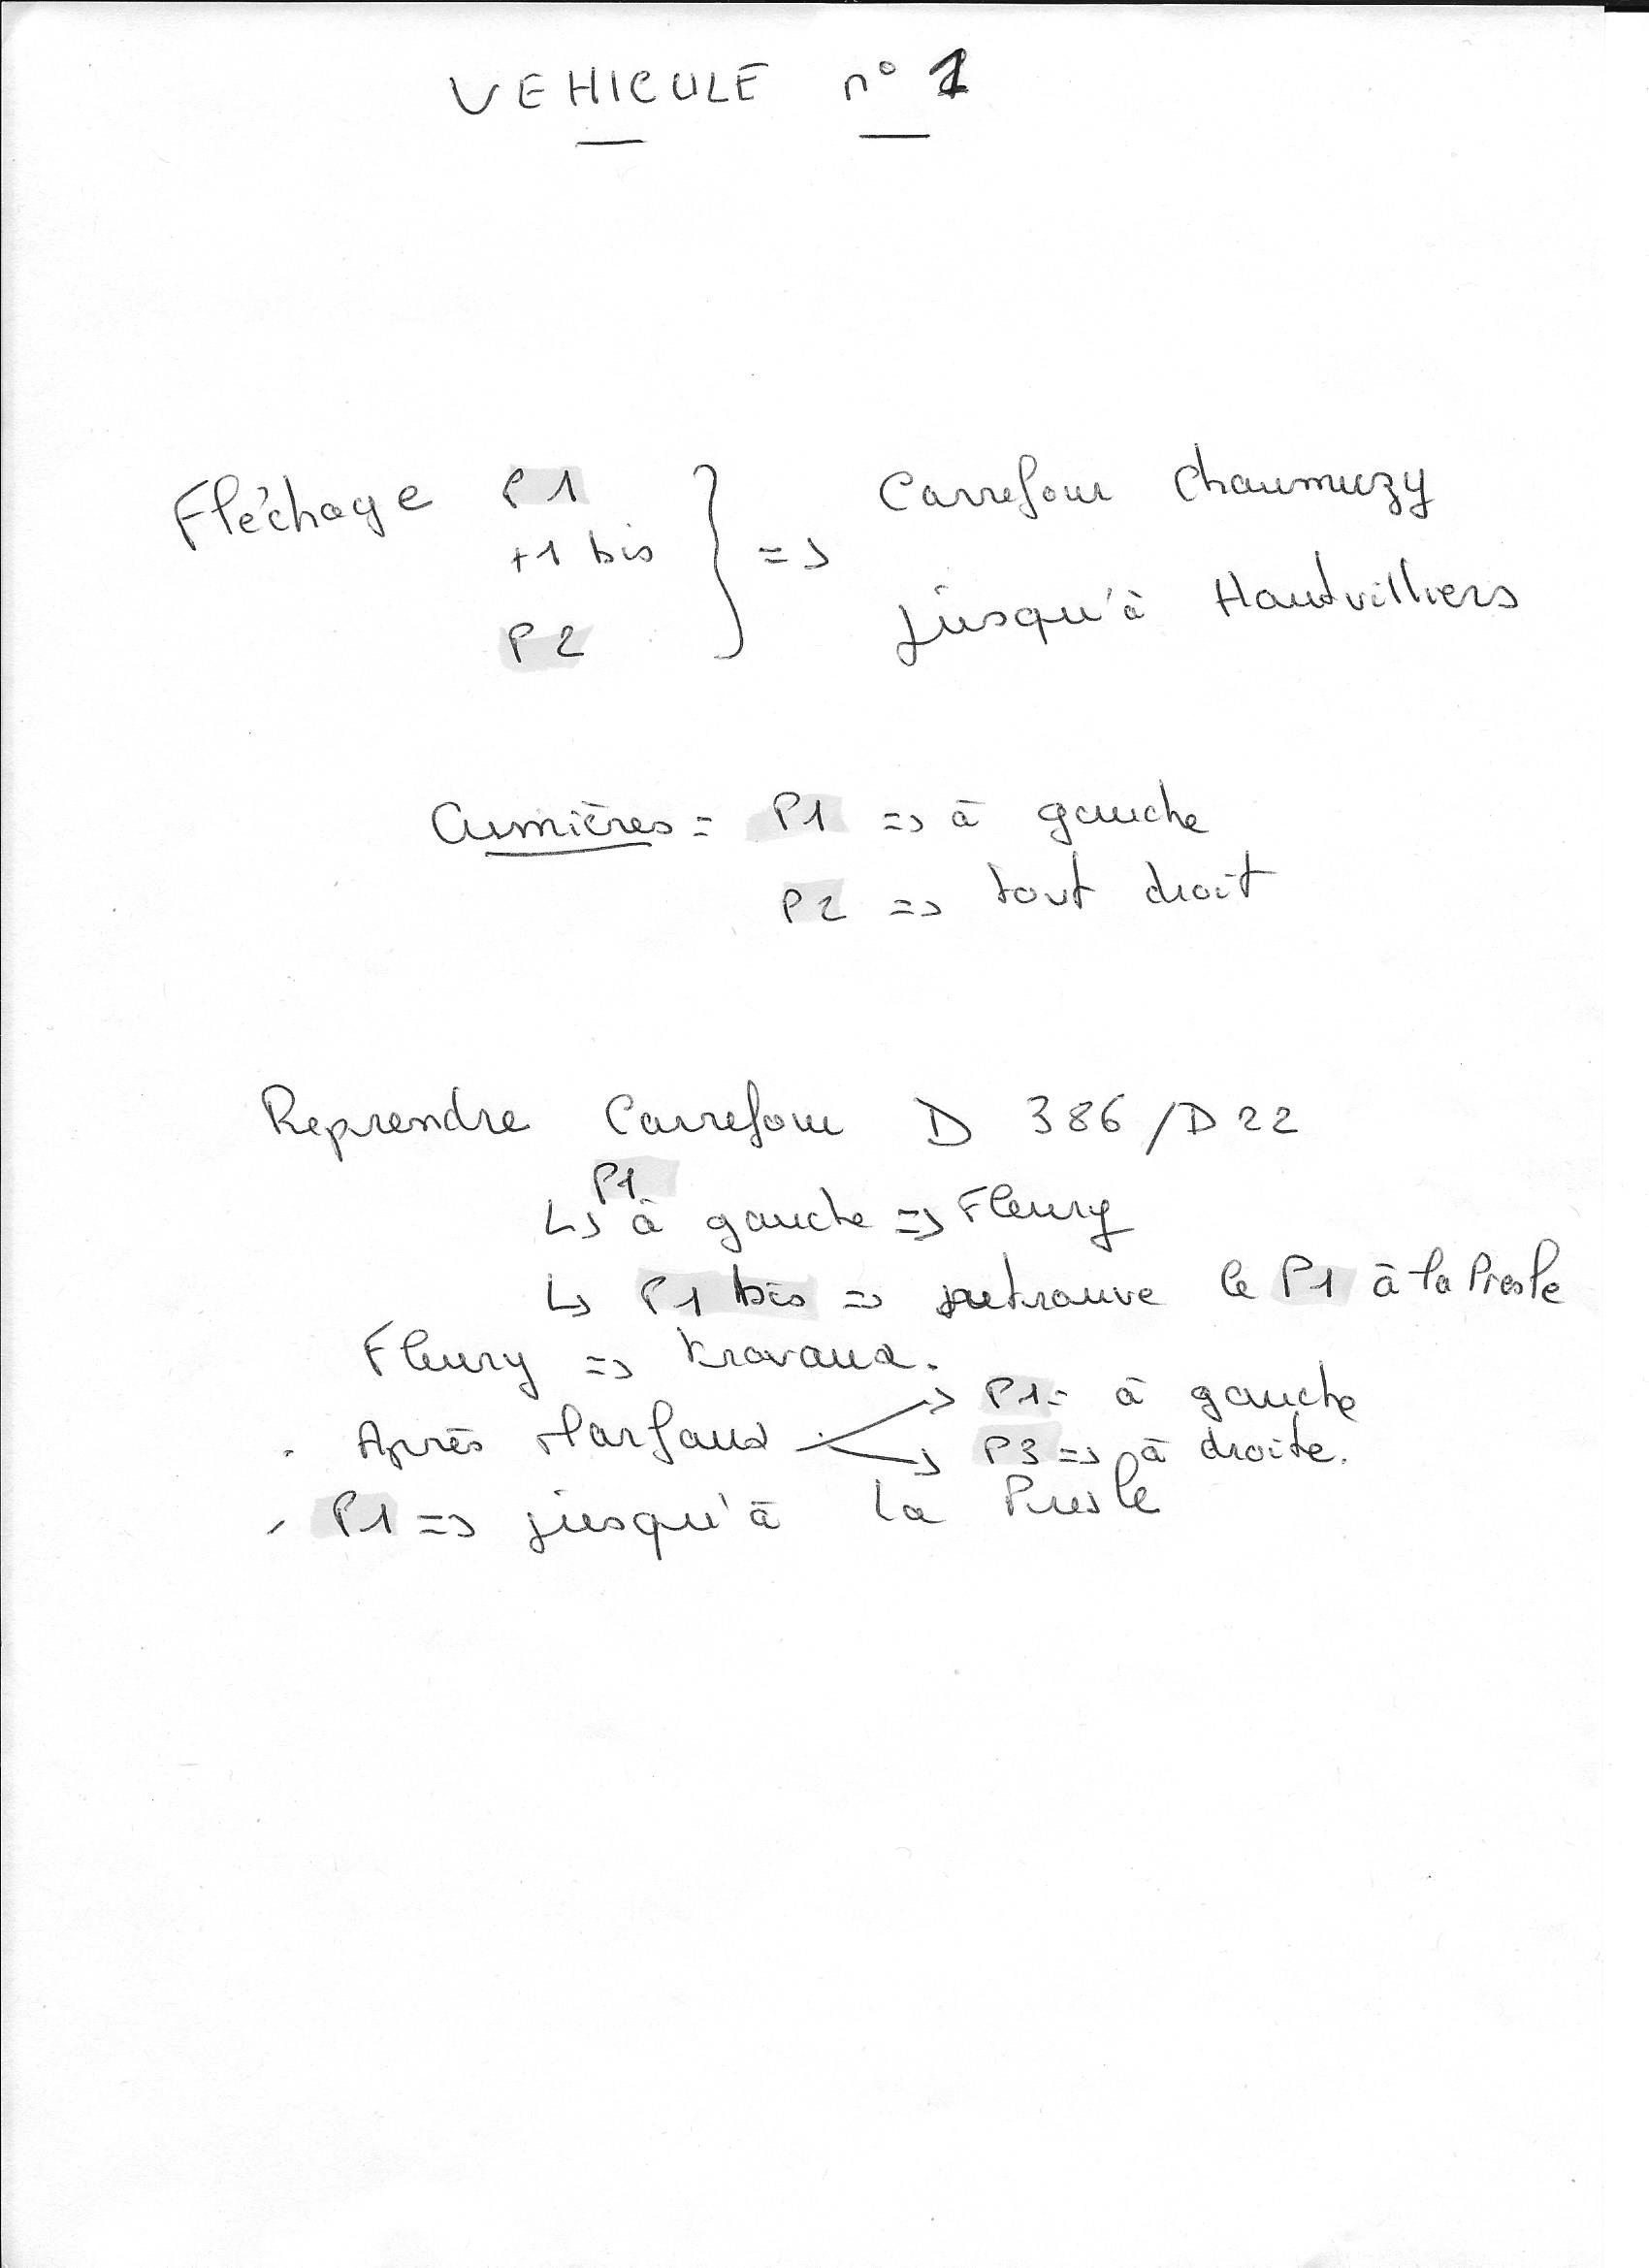 VEHICULE n° 1
Fléchage P1 } => Carrefour Chaumuzy
+1 bis
P2 jusqu'à Hautvilliers
Cumières = P1 => à gauche
P2 => tout droit
Reprendre Carrefour D 386 / D22
P1
↳ à gauche => Fleury
↳ P1 bis => retrouve le P1 à la Presle
Fleury => travaux.
. Après Marfaux → P1 = à gauche
→ P3 => à droite.
- P1 => jusqu'à la Presle